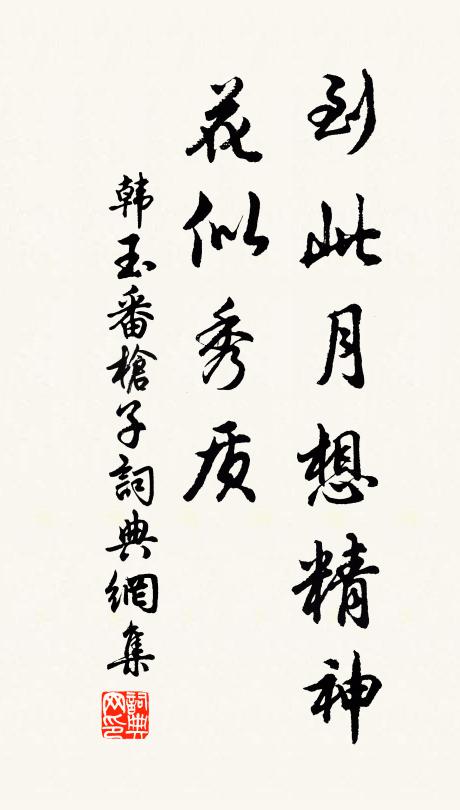 到此月想精神
花似秀质
韩玉番槍子詞典網集
詞典网印